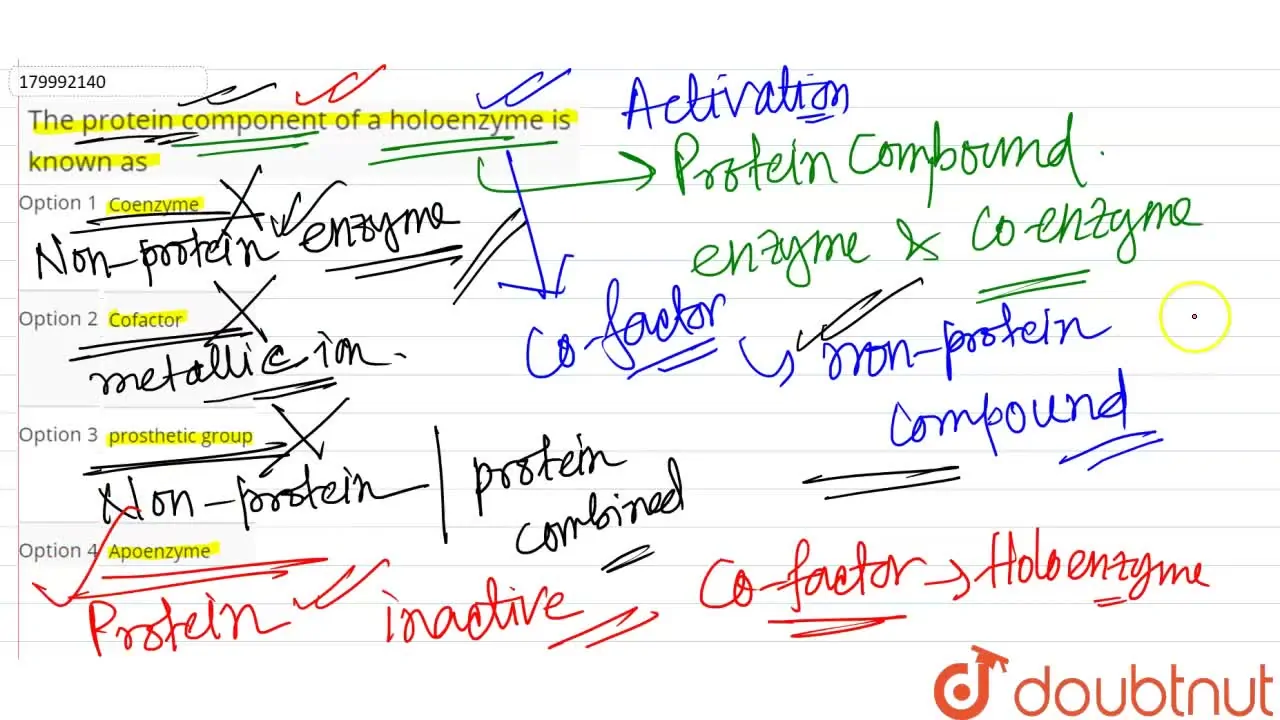 179992140
The protein component of a holoenzyme is
known as
Activation
Protein Compound.
enzyme & Co-enzyme
Option 1 Coenzyme
Non-protein enzyme
Option 2 Cofactor
metallic ion.
Co-factor
non-protein
Compound
Option 3 prosthetic group
Non-protein
protein
combined
Option 4 Apoenzyme
Protein inactive
Co-factor → Holoenzyme
doubtnut